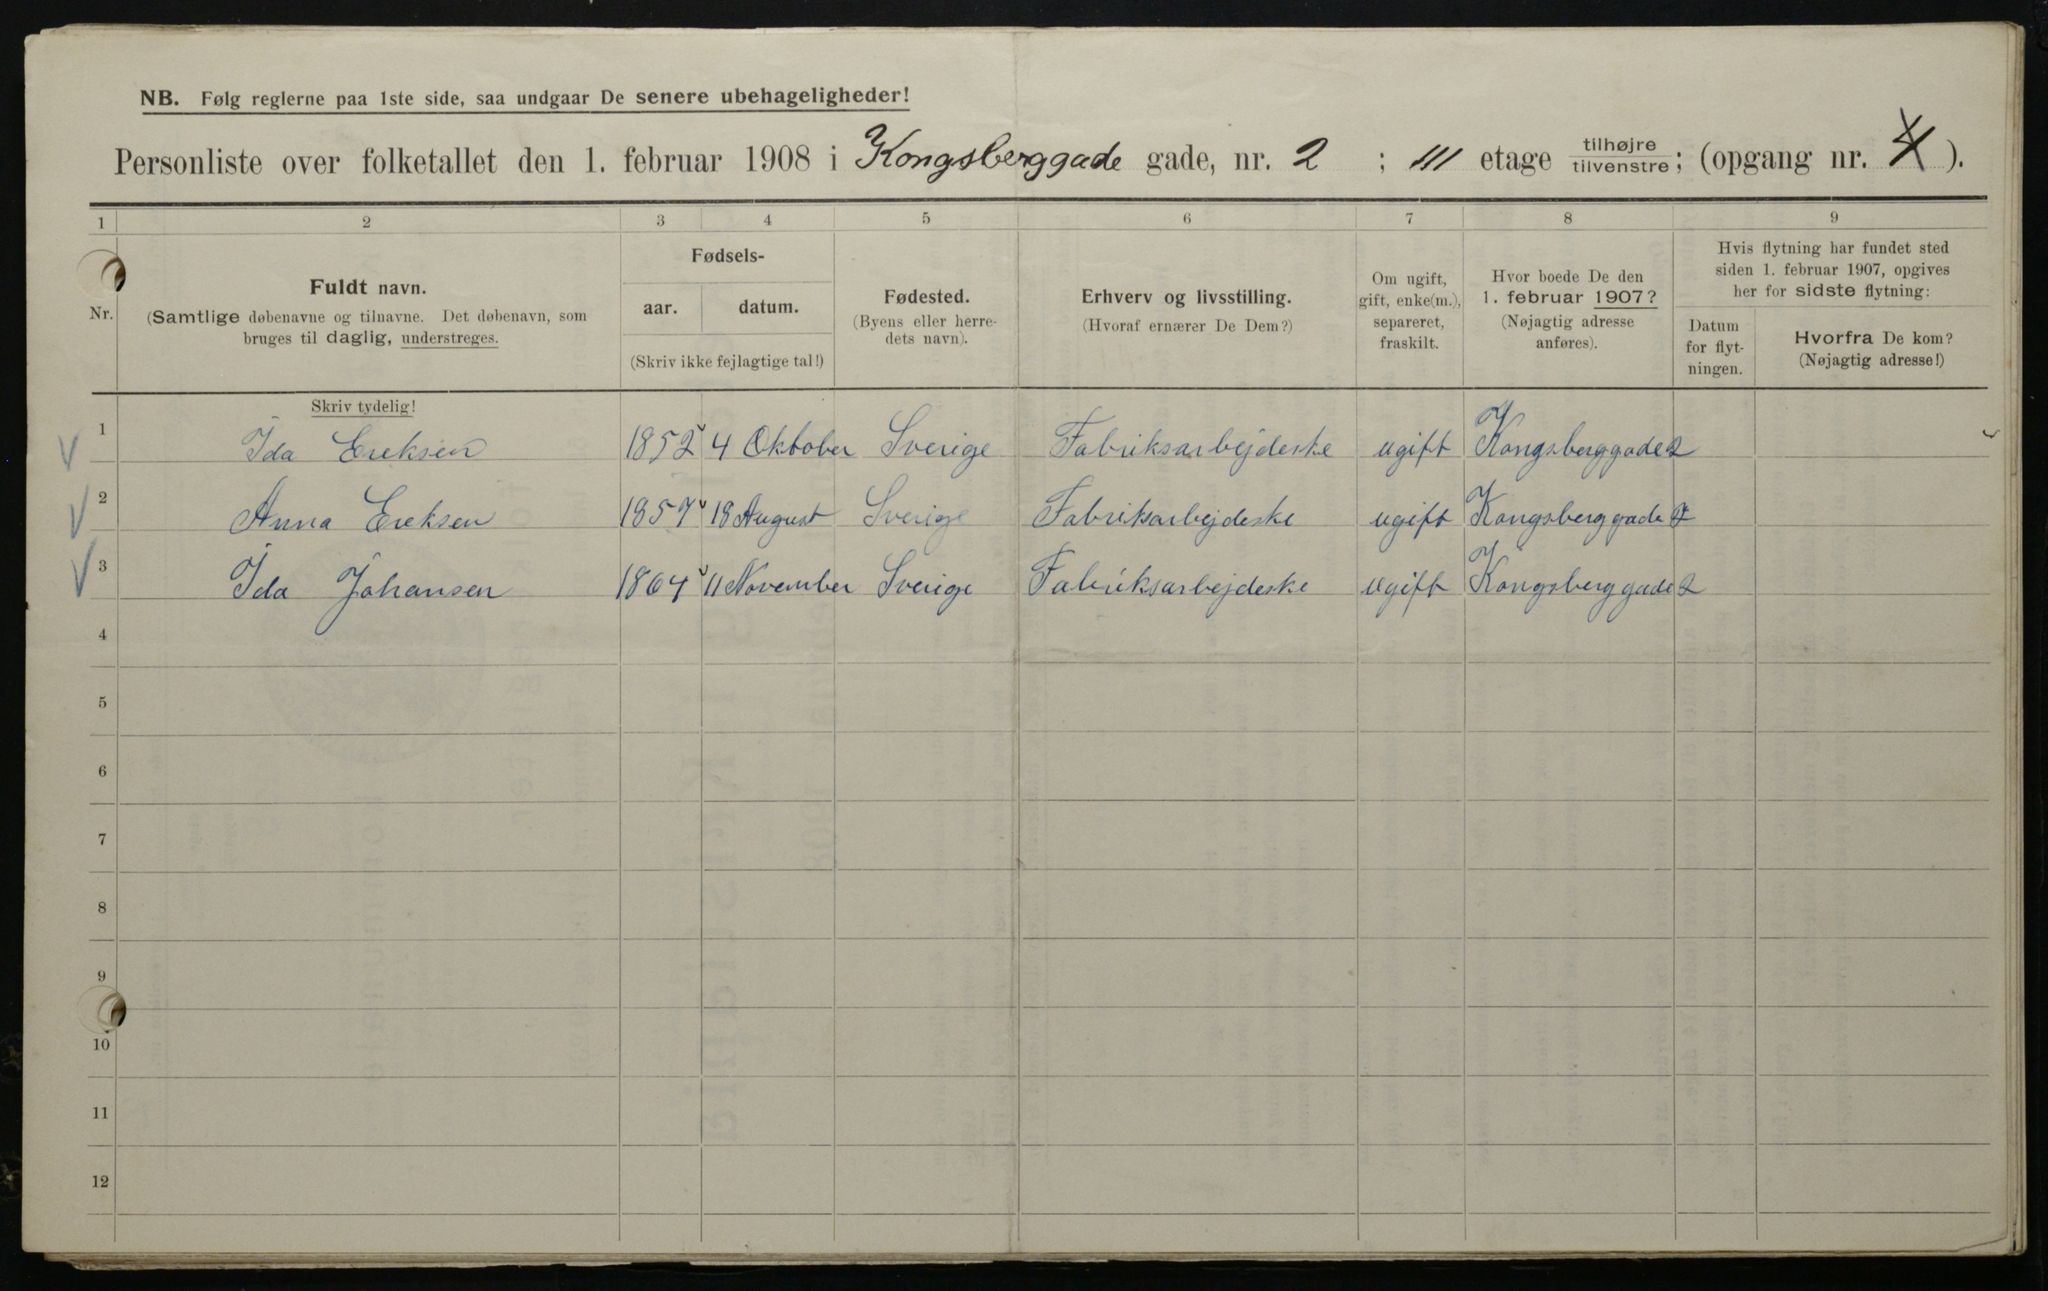 NB. Følg reglerne paa 1ste side, saa undgaar De senere ubehageligheder!
Personliste over folketallet den 1. februar 1908 i Kongsberggade gade, nr. 2 ; III etage tilhøjre/tilvenstre; (opgang nr. ).
1 2 3 4 5 6 7 8 9
Nr.
Fuldt navn.
(Samtlige døbenavne og tilnavne. Det døbenavn, som
bruges til daglig, understreges.
Fødsels-
aar. datum.
(Skriv ikke fejlagtige tal!)
Fødested.
(Byens eller herre-
dets navn).
Erhverv og livsstilling.
(Hvoraf ernærer De Dem?)
Om ugift,
gift, enke(m.),
separeret,
fraskilt.
Hvor boede De den
1. februar 1907?
(Nøjagtig adresse
anføres).
Hvis flytning har fundet sted
siden 1. februar 1907, opgives
her for sidste flytning:
Datum
for flyt-
ningen.
Hvorfra De kom?
(Nøjagtig adresse!)
Skriv tydelig!
1 Ida Ereksen 1852 4 Oktober Sverige Fabriksarbejdeske ugift Kongsberggade 2
2 Anna Ereksen 1857 18 August Sverige Fabriksarbejdeske ugift Kongsberggade 2
3 Ida Johansen 1864 11 November Sverige Fabriksarbejdeske ugift Kongsberggade 2
4
5
6
7
8
9
10
11
12